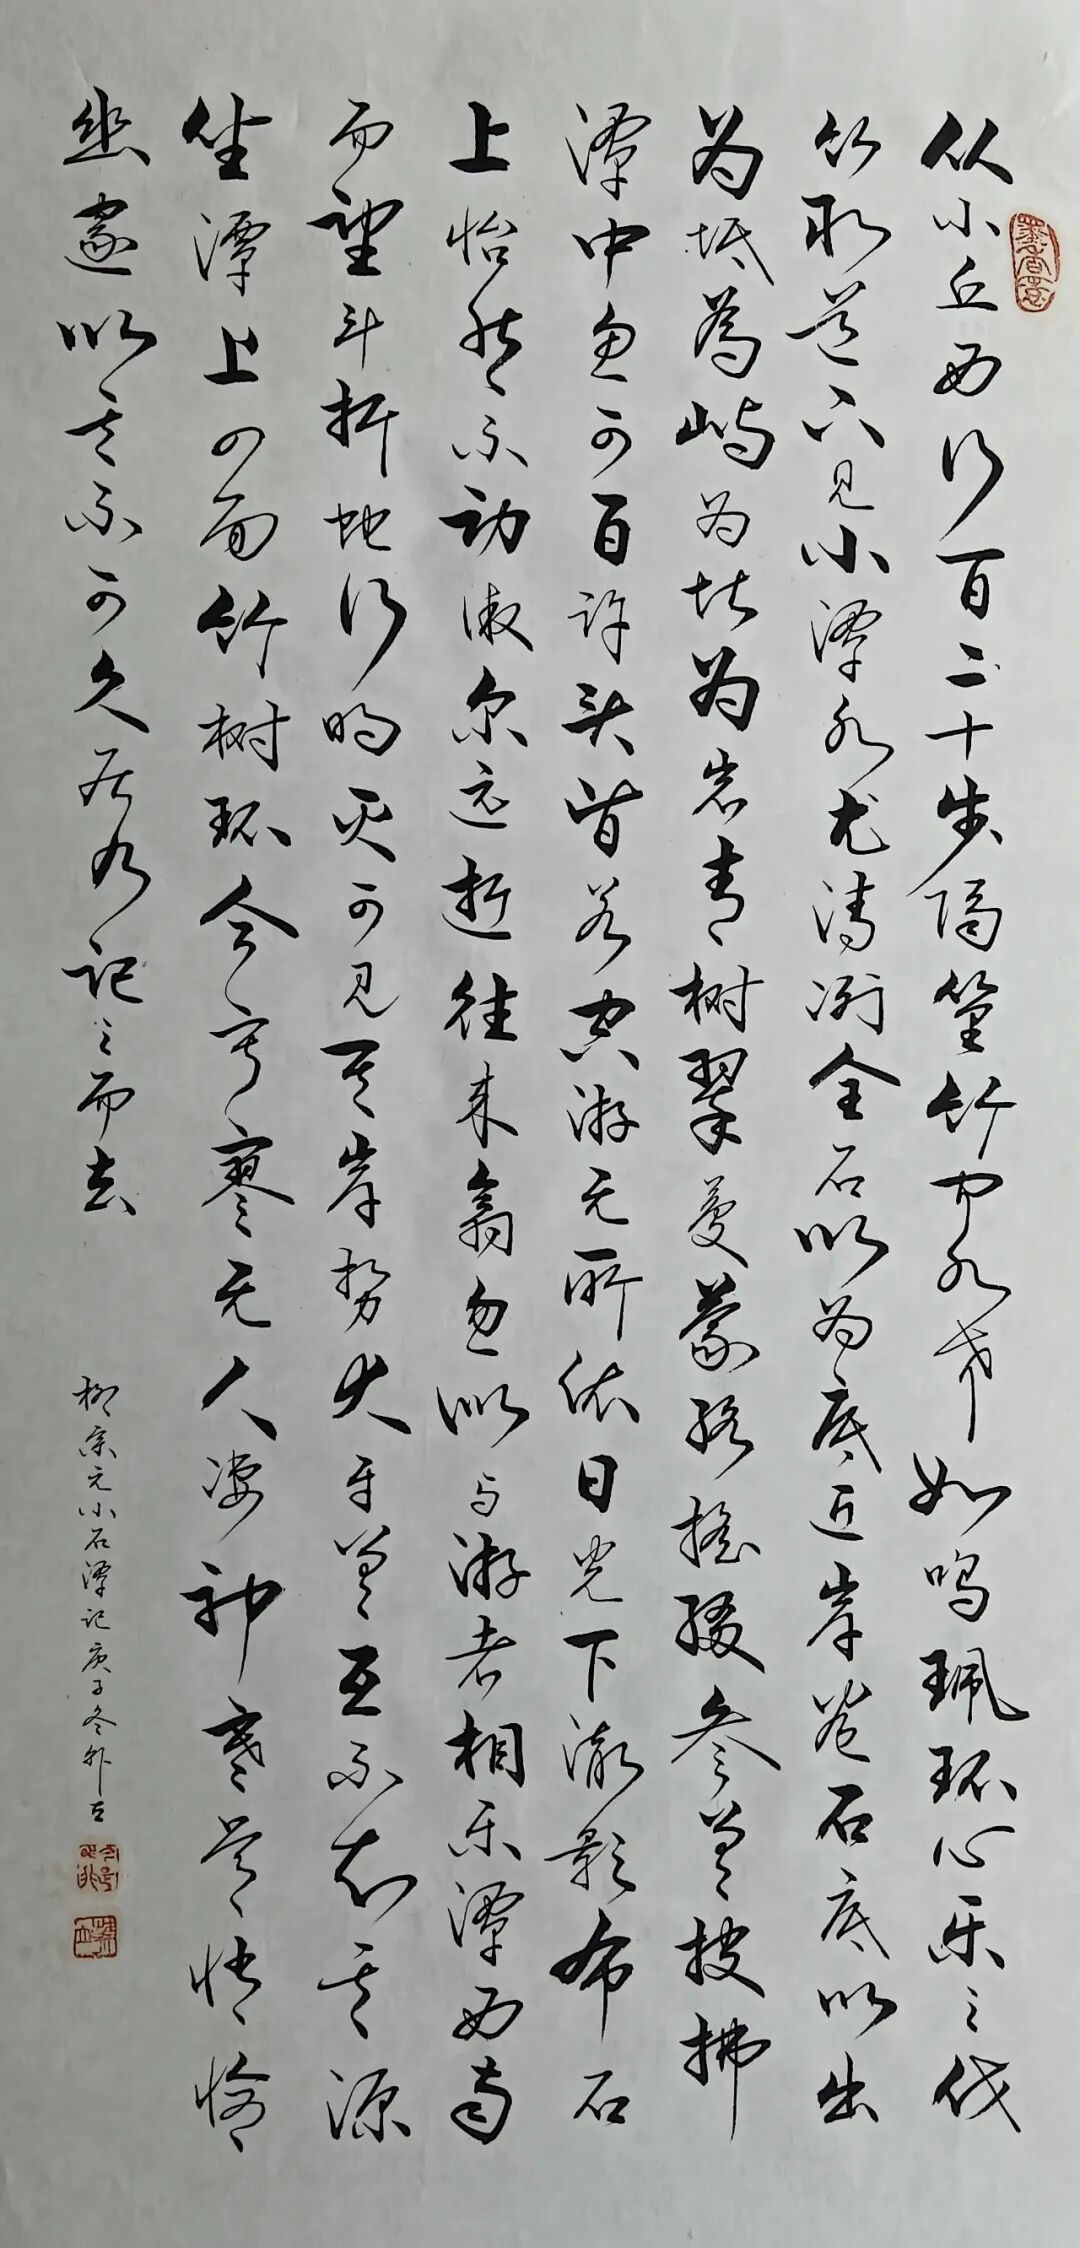 从小丘西行百二十步隔篁竹闻水声如鸣珮环心乐之伐
竹取道下见小潭水尤清冽全石以为底近岸卷石底以出
为坻為屿为堪为岩青树翠蔓蒙络摇缀参差披拂
潭中鱼可百许头皆若空游无所依日光下澈影布石
上怡然不动俶尔远逝往来翕忽似与游者相乐潭西南
而望斗折蛇行明灭可见其岸势犬牙差互不知其源
坐潭上四面竹树环合寂寥无人凄神寒骨悄怆
幽邃以其不可久居乃记之而去
柳宗元小石潭记庚子冬